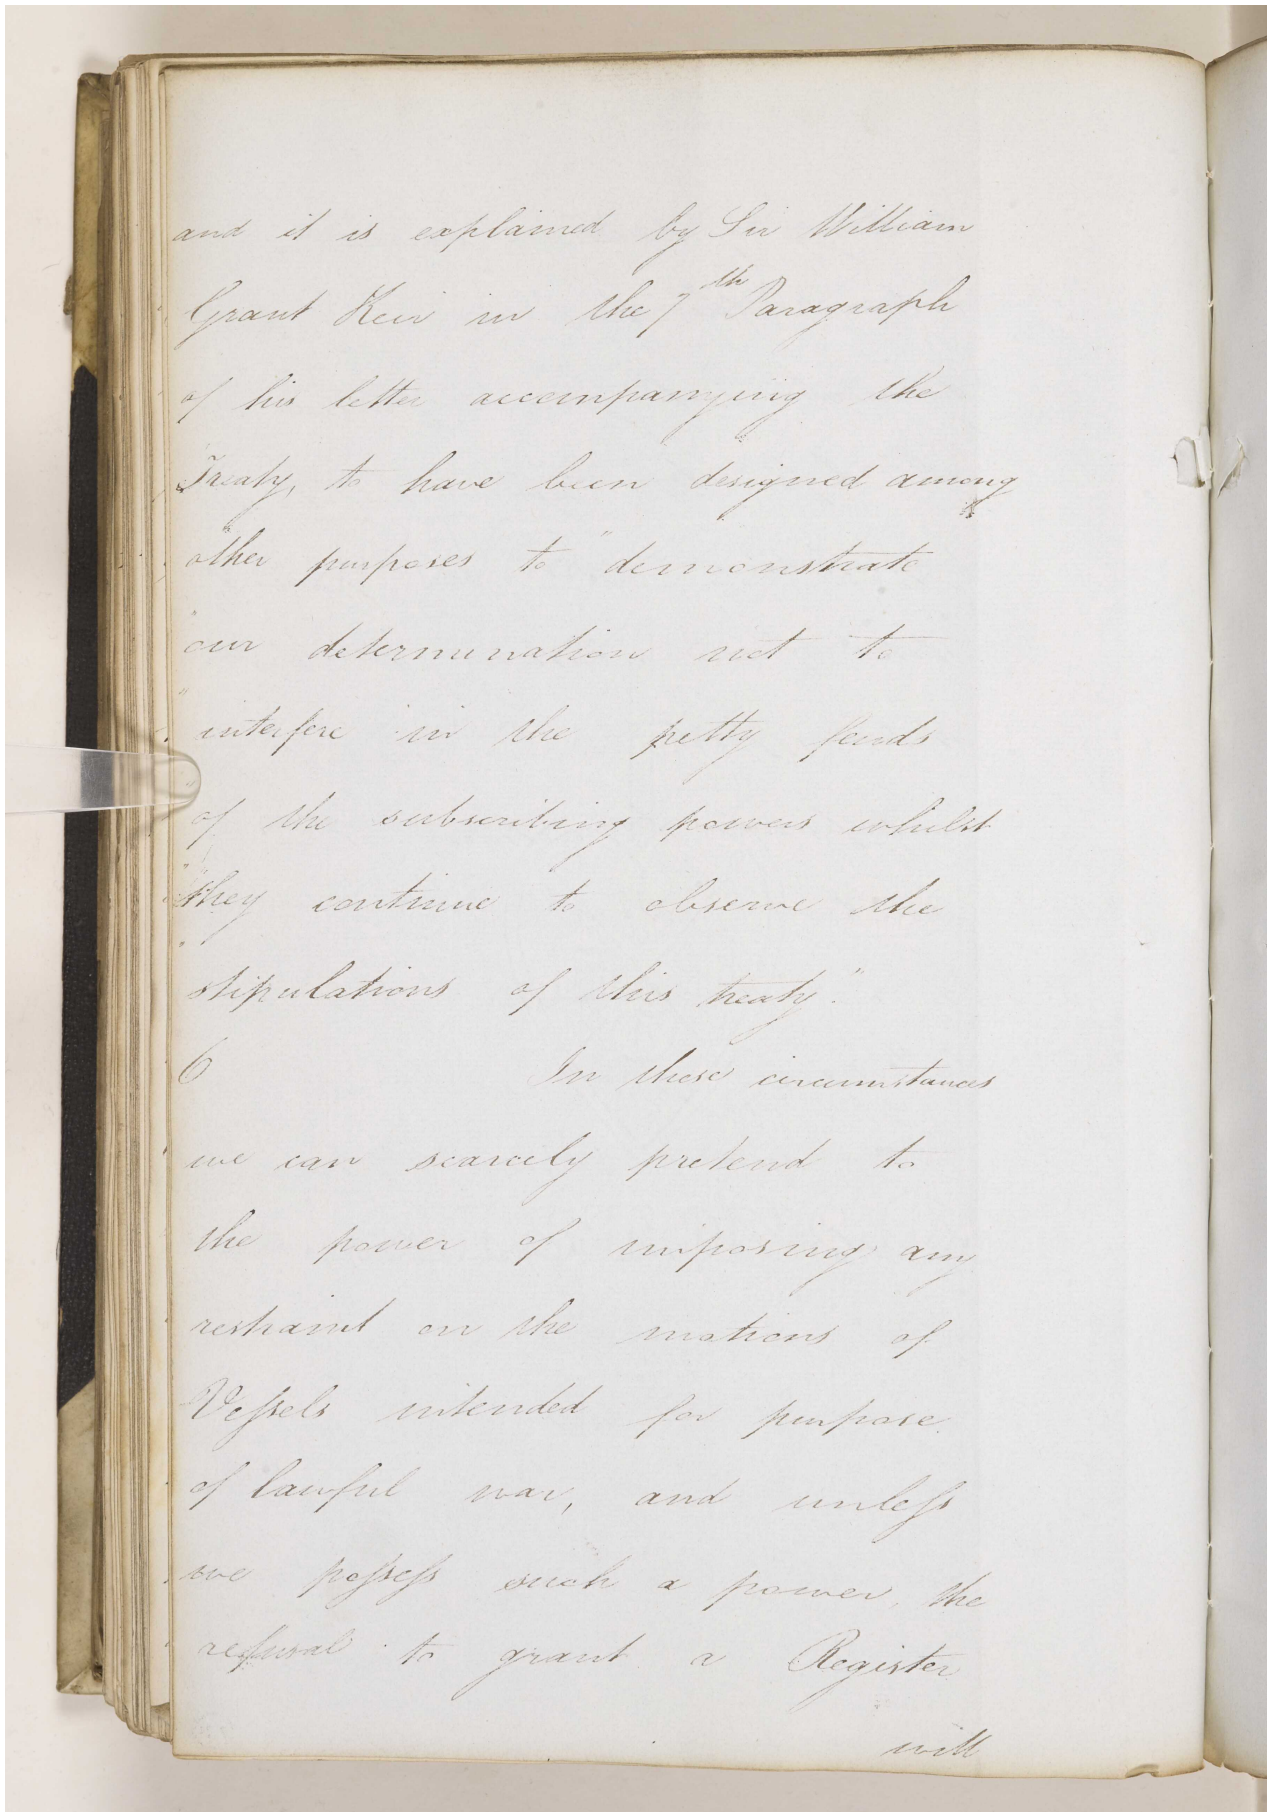 and it is explained by Sir William
Grant Keir in the 7th Paragraph
of his letter accompanying the
Treaty, to have been designed among
other purposes to "demonstrate
"our determination not to
"interfere in the petty feuds
"of the subscribing powers whilst
"they continue to observe the
"stipulations of this treaty."
6 In these circumstances
we can scarcely pretend to
the power of imposing any
restraint on the motions of
Vessels intended for purpose
of lawful war, and unless
we possess such a power, the
refusal to grant a Register
will